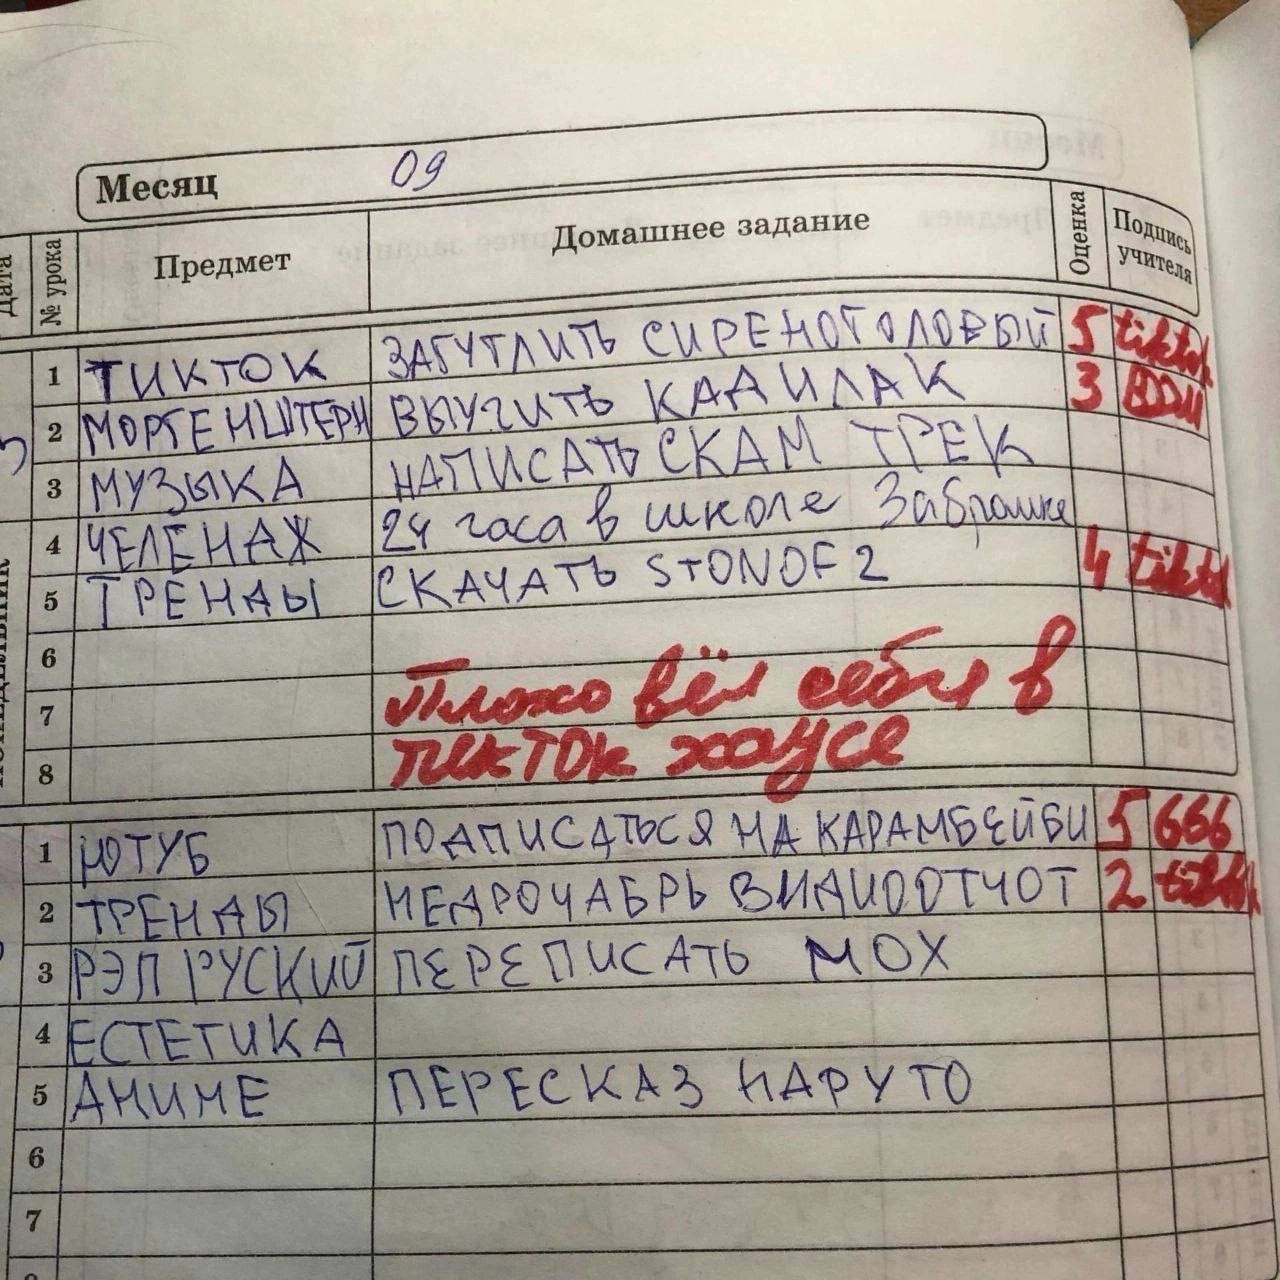 Месяц 09
Дата № урока Предмет Домашнее задание Оценка Подпись учителя
1 ТИКТОК ЗАГУГЛИТЬ СИРЕНОГОЛОВЫЙ 5 tiktok
2 МОРГЕНШТЕРН ВЫУЧИТЬ КАДИЛАК 3
3 МУЗЫКА НАПИСАТЬ СКАМ ТРЕК
4 ЧЕЛЕНАЖ 24 часа в школе Заброшке
5 ТРЕНДЫ СКАЧАТЬ STONOF 2 4 tiktok
6
7 Плохо вёл себя в
8 тикток хаусе
1 ЮТУБ ПОДПИСАТЬСЯ НА КАРАМБЕЙБИ 5 666
2 ТРЕНДЫ НЕДРОЧАБРЬ ВИДИООТЧОТ 2 tiktok
3 РЭП РУСКИЙ ПЕРЕПИСАТЬ МОХ
4 ЕСТЕТИКА
5 АНИМЕ ПЕРЕСКАЗ НАРУТО
6
7